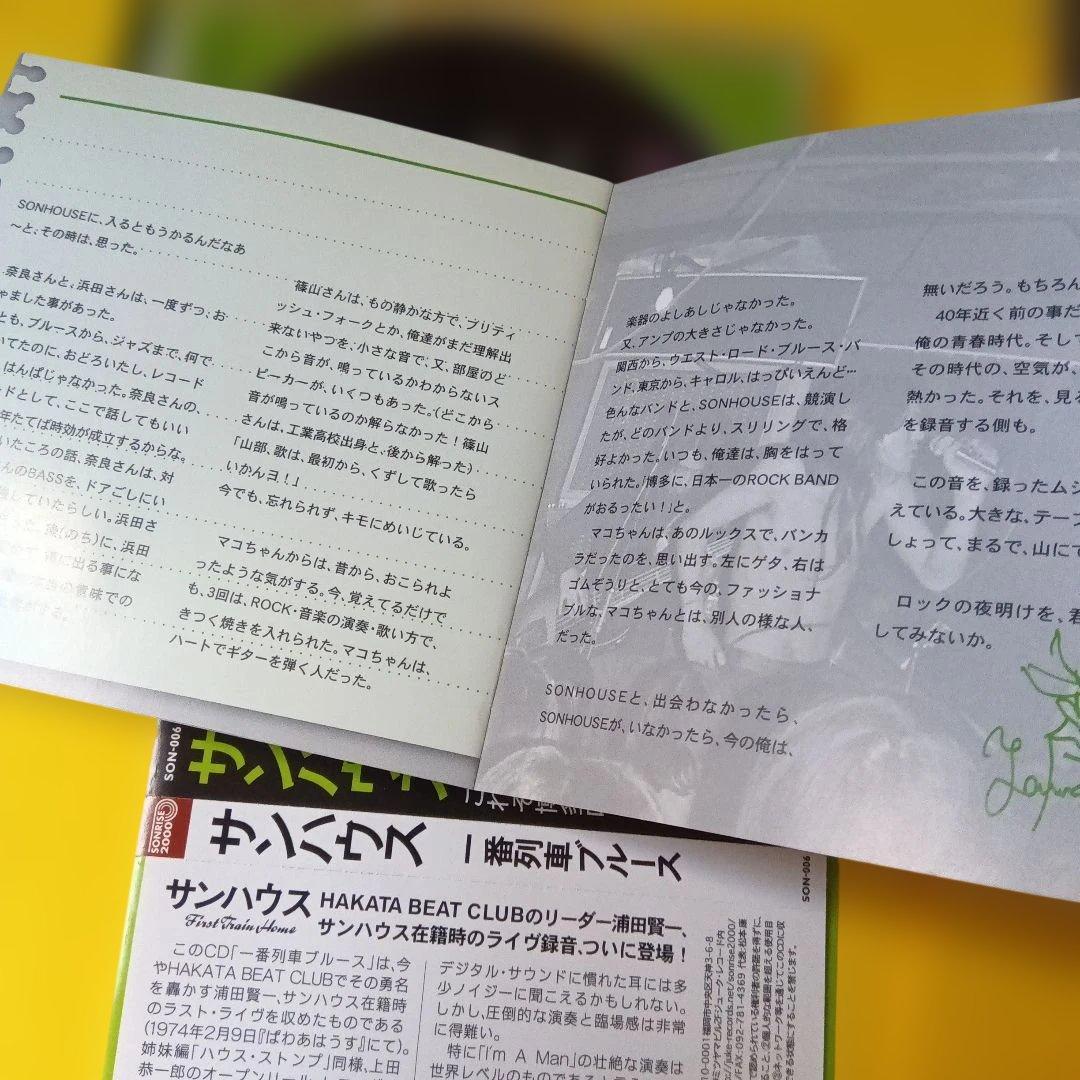 SONHOUSEに、入るともうかるんだなあ
～と、その時は、思った。
奈良さんと、浜田さんは、一度ずつ、お
ゃました事があった。
とも、ブルースから、ジャズまで、何で
いてたのに、おどろいたし、レコード
はんぱじゃなかった。奈良さんの、
ドとして、ここで話してもいい
年たてば時効が成立するからな。
いたころの話、奈良さんは、対
んのBASSを、ドアごしにい
強していたらしい。浜田さ
後(のち)に、浜田
に出る事にな
意味での
篠山さんは、もの静かな方で、プリティ
ッシュ・フォークとか、俺達がまだ理解出
来ないやつを、小さな音で、又、部屋のど
こから音が、鳴っているかわからないス
ピーカーが、いくつもあった。(どこから
音が鳴っているのか解らなかった！篠山
さんは、工業高校出身と、後から解った)
「山部、歌は、最初から、くずして歌ったら
いかんヨ！」
今でも、忘れられず、キモにめいじている。
マコちゃんからは、昔から、おこられよ
ったような気がする。今、覚えてるだけで
も、3回は、ROCK・音楽の演奏・歌い方で、
きつく焼きを入れられた。マコちゃんは、
ハートでギターを弾く人だった。
楽器のよしあしじゃなかった。
又、アンプの大きさじゃなかった。
関西から、ウエスト・ロード・ブルース・バ
ンド、東京から、キャロル、はっぴいえんど…
色んなバンドと、SONHOUSEは、競演し
たが、どのバンドより、スリリングで、格
好よかった。いつも、俺達は、胸をはって
いられた。「博多に、日本一のROCK BAND
がおるったい！」と。
マコちゃんは、あのルックスで、バンカ
ラだったのを、思い出す。左にゲタ、右は
ゴムぞうりと、とても今の、ファッショナ
ブルな、マコちゃんとは、別人の様な人、
だった。
SONHOUSEと、出会わなかったら、
SONHOUSEが、いなかったら、今の俺は、
無いだろう。もちろん
40年近く前の事だ
俺の青春時代。そして
その時代の、空気が、
熱かった。それを、見る
を録音する側も。
この音を、録ったムシ
えている。大きな、テープ
しょって、まるで、山にで
ロックの夜明けを、君
してみないか。
SON-006
サンハウス
SONRISE
2000
サンハウス 一番列車ブルース
SON-006
サンハウス
First Train Home
HAKATA BEAT CLUBのリーダー浦田賢一、
サンハウス在籍時のライヴ録音、ついに登場！
このCD「一番列車ブルース」は、今
やHAKATA BEAT CLUBでその勇名
を轟かす浦田賢一、サンハウス在籍時
のラスト・ライヴを収めたものである
(1974年2月9日『ぱわあはうす』にて)。
姉妹編「ハウス・ストンプ」同様、上田
恭一郎のオープンリール
デジタル・サウンドに慣れた耳には多
少ノイジーに聞こえるかもしれない。
しかし、圧倒的な演奏と臨場感は非常
に得難い。
特に「I'm A Man」の壮絶な演奏は
世界レベルのものである
10-0001福岡市中央区天神3-6-8
ミツヤマビル2Fジューク・レコード内
/FAX:092-781-4369 代表:松本康